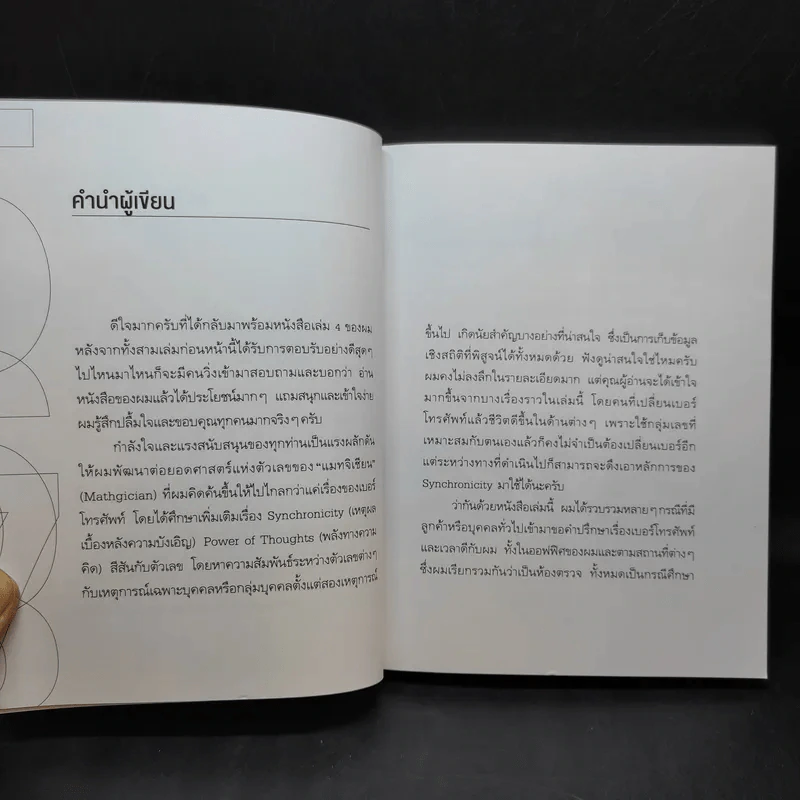 คำนำผู้เขียน
ดีใจมากครับที่ได้กลับมาพร้อมหนังสือเล่ม 4 ของผม
หลังจากทั้งสามเล่มก่อนหน้านี้ได้รับการตอบรับอย่างดีสุดๆ
ไปไหนมาไหนก็จะมีคนวิ่งเข้ามาสอบถามและบอกว่า อ่าน
หนังสือของผมแล้วได้ประโยชน์มากๆ แถมสนุกและเข้าใจง่าย
ผมรู้สึกปลื้มใจและขอบคุณทุกคนมากจริงๆ ครับ
กำลังใจและแรงสนับสนุนของทุกท่านเป็นแรงผลักดัน
ให้ผมพัฒนาต่อยอดศาสตร์แห่งตัวเลขของ “แมทจิเชียน”
(Mathgician) ที่ผมคิดค้นขึ้นให้ไปไกลกว่าแค่เรื่องของเบอร์
โทรศัพท์ โดยได้ศึกษาเพิ่มเติมเรื่อง Synchronicity (เหตุผล
เบื้องหลังความบังเอิญ) Power of Thoughts (พลังทางความ
คิด) สีสันกับตัวเลข โดยหาความสัมพันธ์ระหว่างตัวเลขต่างๆ
กับเหตุการณ์เฉพาะบุคคลหรือกลุ่มบุคคลตั้งแต่สองเหตุการณ์
ขึ้นไป เกิดนัยสำคัญบางอย่างที่น่าสนใจ ซึ่งเป็นการเก็บข้อมูล
เชิงสถิติที่พิสูจน์ได้ทั้งหมดด้วย ฟังดูน่าสนใจใช่ไหมครับ
ผมคงไม่ลงลึกในรายละเอียดมาก แต่คุณผู้อ่านจะได้เข้าใจ
มากขึ้นจากบางเรื่องราวในเล่มนี้ โดยคนที่เปลี่ยนเบอร์
โทรศัพท์แล้วชีวิตดีขึ้นในด้านต่างๆ เพราะใช้กลุ่มเลขที่
เหมาะสมกับตนเองแล้วก็คงไม่จำเป็นต้องเปลี่ยนเบอร์อีก
แต่ระหว่างทางที่ดำเนินไปก็สามารถจะดึงเอาหลักการของ
Synchronicity มาใช้ได้นะครับ
ว่ากันด้วยหนังสือเล่มนี้ ผมได้รวบรวมหลายๆ กรณีที่มี
ลูกค้าหรือบุคคลทั่วไปเข้ามาขอคำปรึกษาเรื่องเบอร์โทรศัพท์
และเวลาดีกับผม ทั้งในออฟฟิศของผมและตามสถานที่ต่างๆ
ซึ่งผมเรียกรวมกันว่าเป็นห้องตรวจ ทั้งหมดเป็นกรณีศึกษา